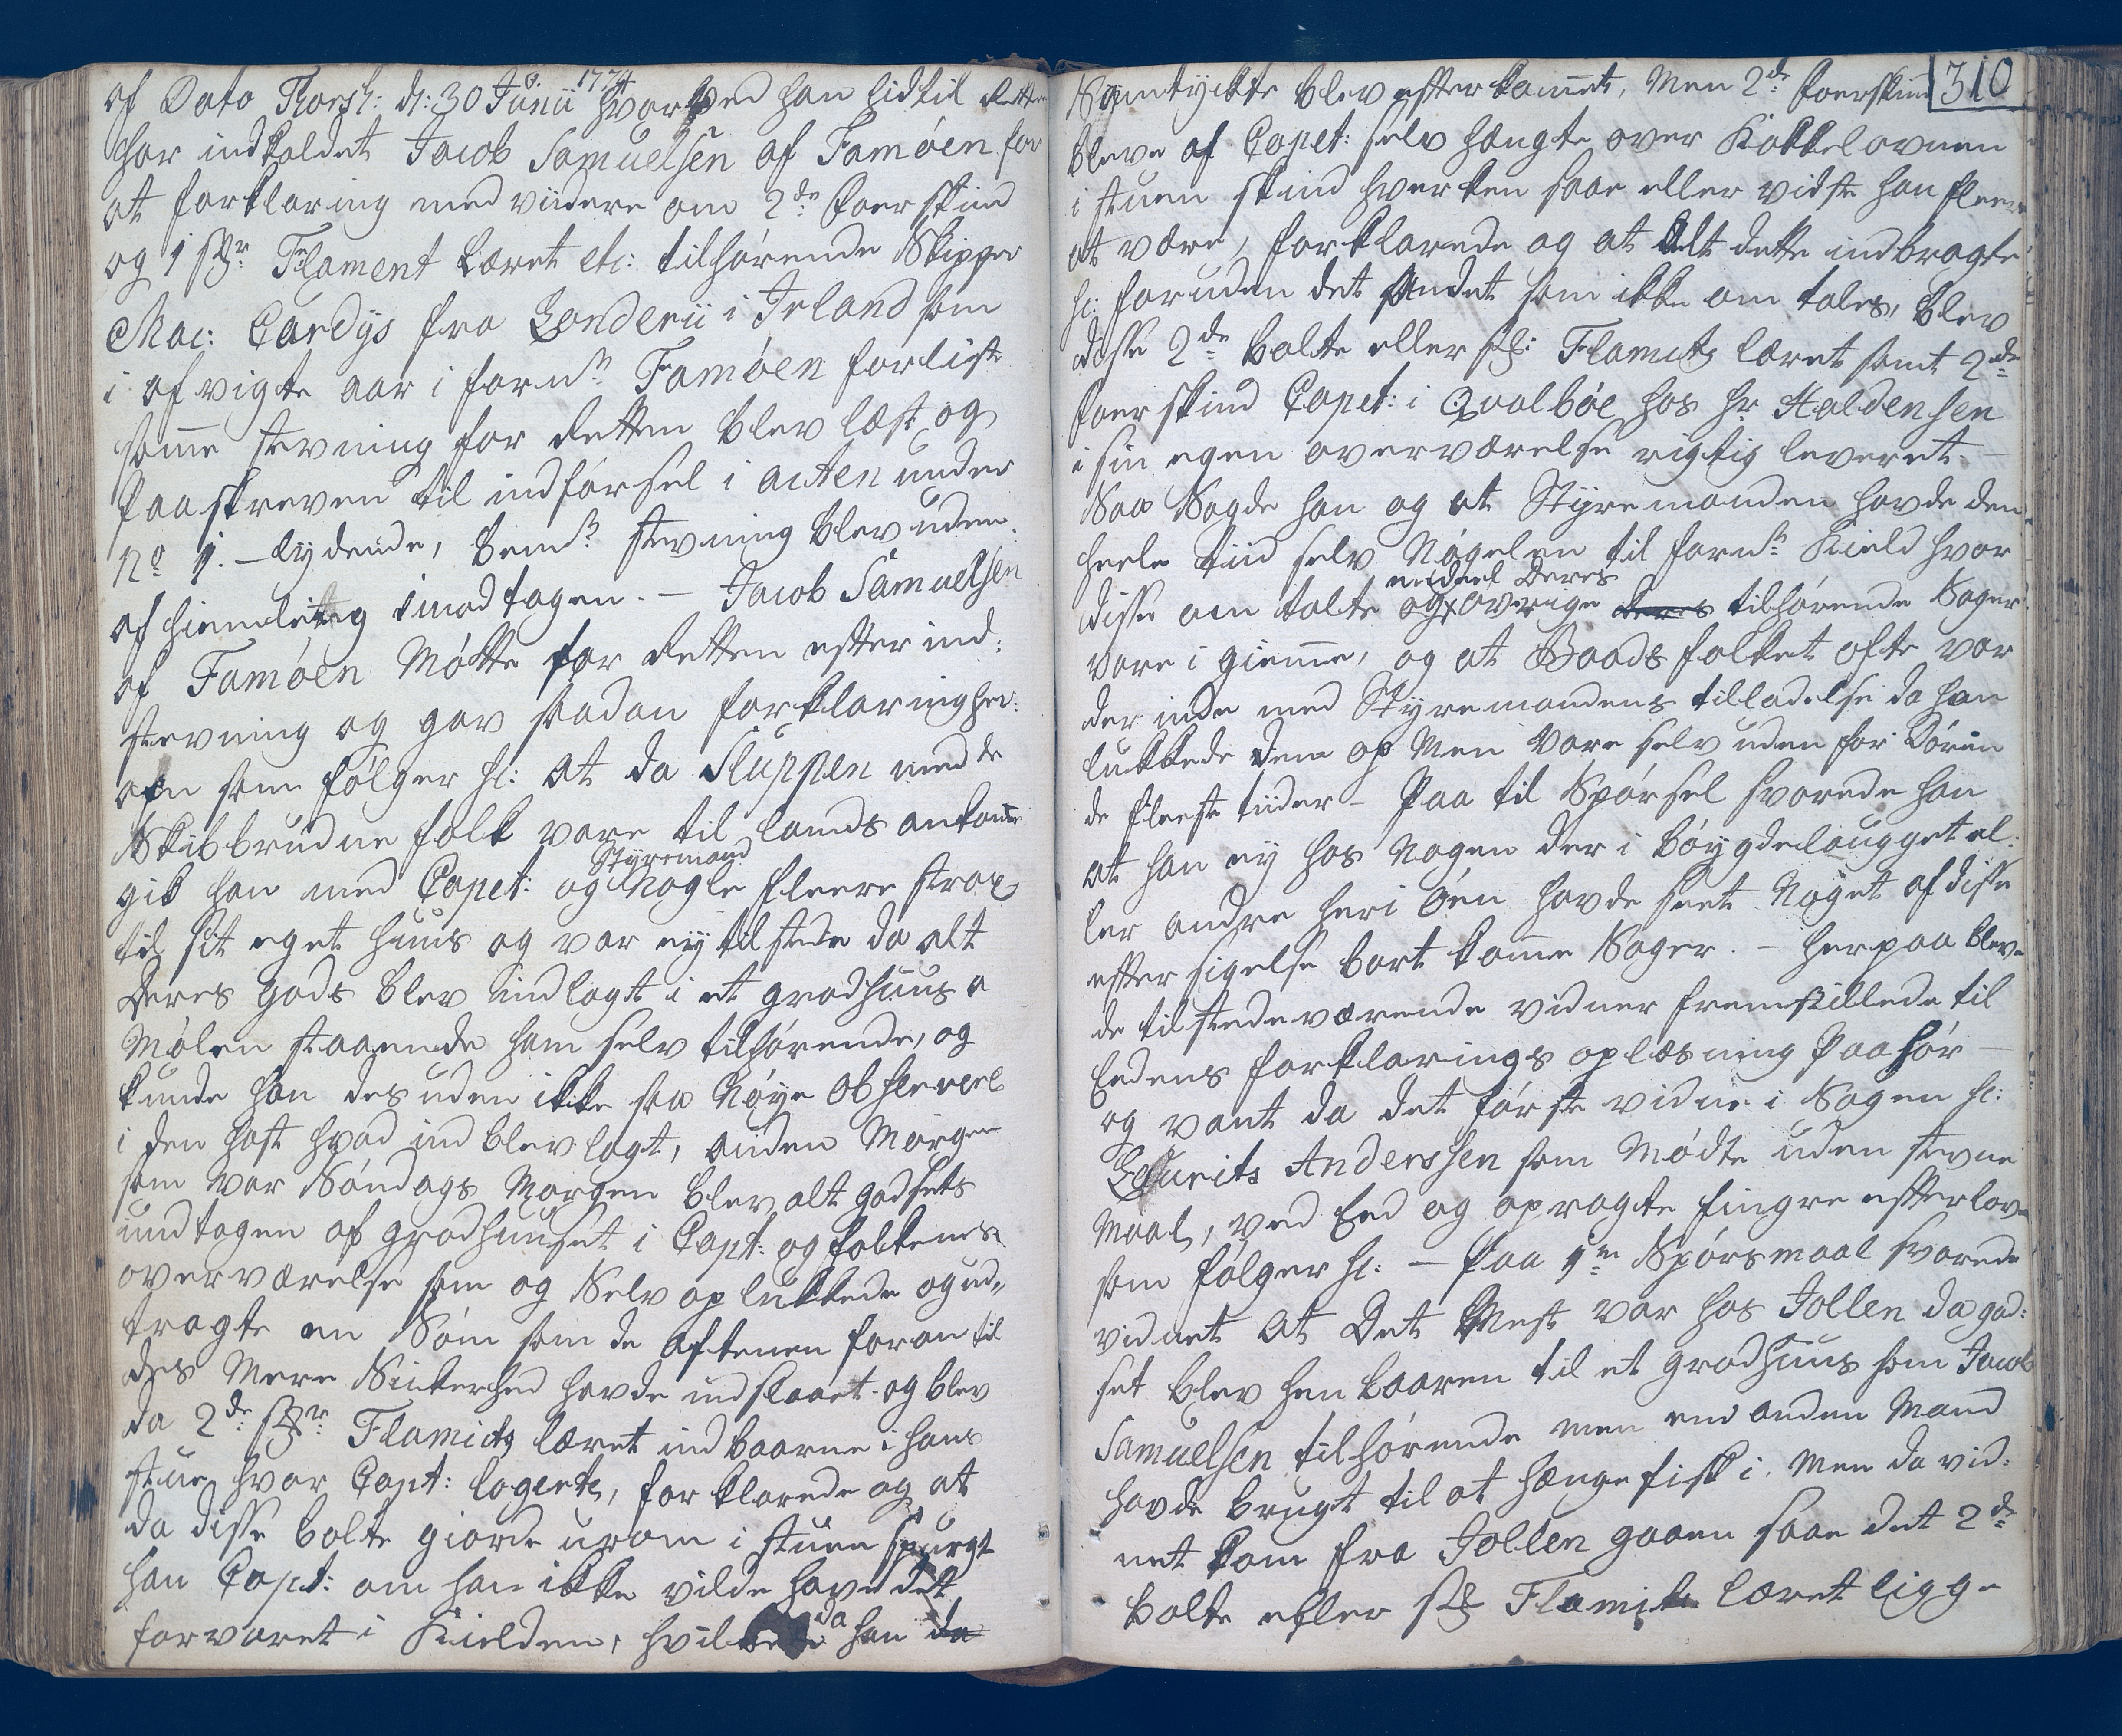 of Dato Thorsh: d: 30 Junii 1774 hvorved han hidtil Retten
har indkaldet Jacob Samuelsen af Famöen for
at forklaring med viidere om 2de Faerskind
og 1 st&r Flament Læret etc: tilhörende Skipper
Mac: Cardys fra Londerii i Irland som
i afvigte aar i fornte Famöen forliste
samme stevning for Retten blev læst og
Paaskreven til indförsel i acten under
No 1. – lydende, bemte stevning blev uden
af hiemleteg imodtagen. – Jacob Samuelsen
af Famöen Mötte for Retten efter ind:
stevning og gav saadan forklaring her:
om som fölger hc: at da Sluppen med de
Skibbrudne folk vare til lands ankomne
gik han med Capet: og Styremand Nogle fleere strax
til sit eget huus og var ey tilstede da alt
Deres gods blev indlagt i et gradhuus a
Mölen staaende ham selv tilhörende, og
kunde han desuden ikke saa Nöye obserwere
i den hast hvad ind blev lagt, anden Morgen
som var Söndags Morgen blev alt godsets
undtagen af gradhuuset i Capt: og folkenes
overværelse som og Selv oplukkede og ud,,
tragte en Söm som de Aftenen foran til
des Mere Sikkerhed havde indslaaet. og blev
da 2de st&r Flamicts læret indbaarne i hans
stue hvor Capt: logerte, forklarede og at
da disse bolte giorde urom i stuen spurgt
han Capt: om han ikke vilde have det
forvaret i Kielden, hvilket da han da
310
Samtyckte blev efterkommet, Men 2de Faerskind
bleve af Capet: selv hængte over Kakkelovnen
i stuen skind hverken saae eller vidste han fleere
at være, forklarede og at Alt dette indbragte
hc: foruden det Andet som ikke om tales, blev
disse 2de bolte eller st&: Flamcts læret samt 2de
Faerskind Capet: i Qvalböe hos hr Haldensen
i sin egen overværelse rigtig leveret. –
Saa Sagde han og at Styremanden havde den
heele tiid selv Nögelen til fornte Kield hvor
disse om talte og en deel Deres overige deres tilhörende Sager
vare i giemme, og at Baads folket ofte var
der inde med Styremandens tilladelse da han
lukkede dem op Men vare selv uden for Dören
de fleeste tiider – Paa til Spörsel svarede han
at han ey hos Nogen der i böygdelauget el:
ler andre her i Öen havde seet Noget af disse
efter sigelse bort komme Sager. – herpaa bleve
de tilstedeværende vidner fremstillede til
Eedens forklarings oplæsning Paahör –
og vant da det förste vidne i Sagen hc:
Laurits Anderssen som Mödte uden stevne
Maal, ved Eed og opragte fingre efter loven
som fölger hc: – Paa 1te Spörsmaal svarede
vidnet At Det Mest var hos Jollen da god:
set blev hen baaren til et gradhuus som Jacob
Samuelsen tilhörende men en anden Mand
havde brugt til at hænge fisk i. Men da vid:
net kom fra Jollen gaaen saae det 2de
bolte eller st& Flamicts læret ligge